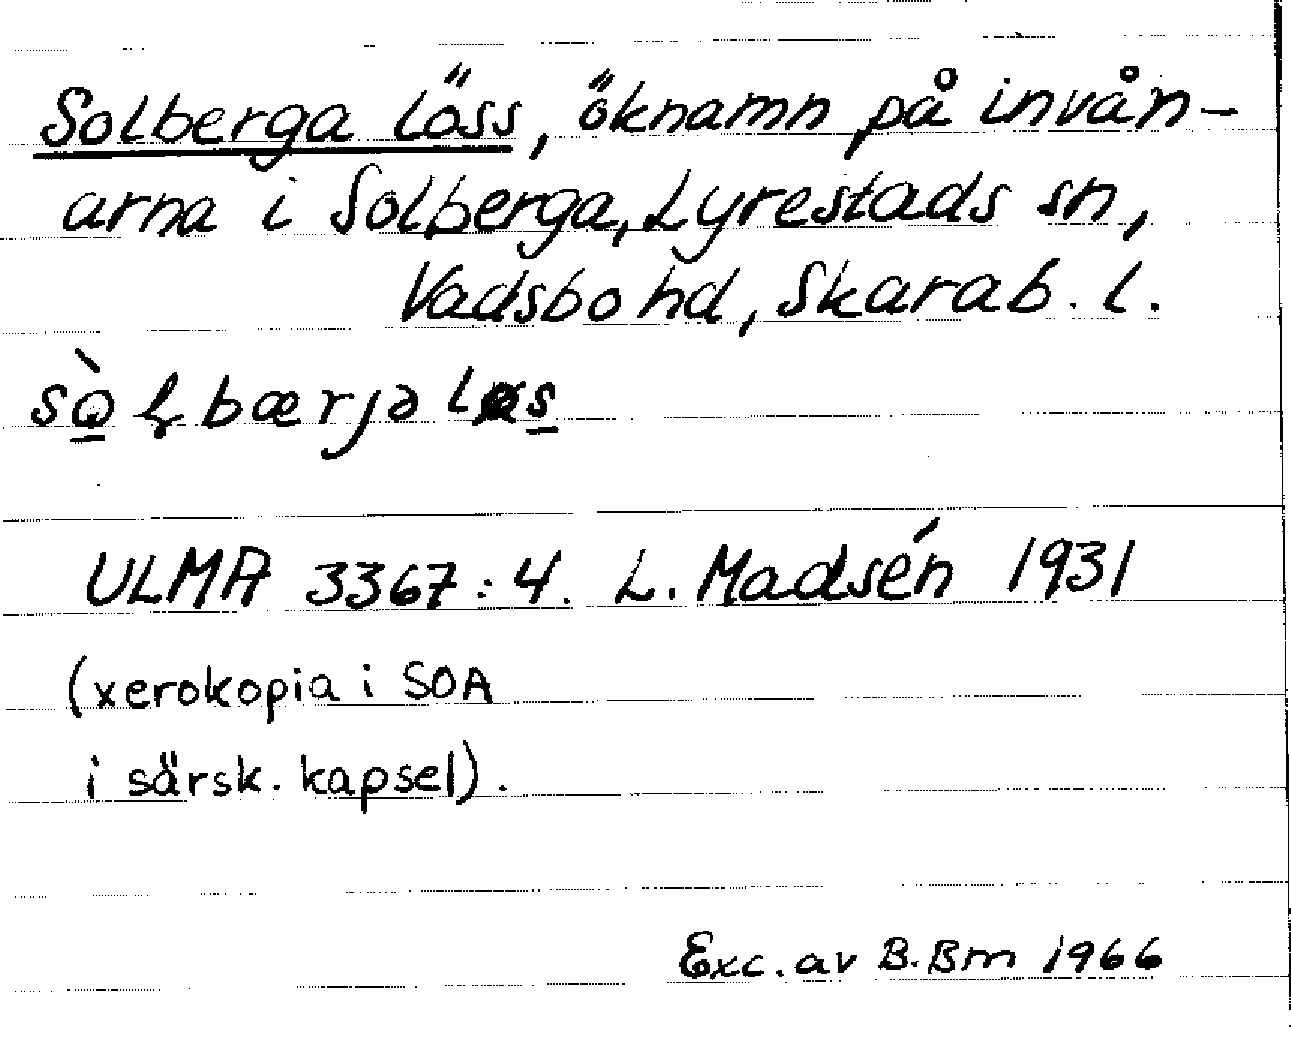 Solberga löss, öknamn på invån-
arna i Solberga, Lyrestads sn,
Vadsbo hd, Skarab. l.
ULMA 3367:4. L. Madsén 1931
(xerokopia i SOA
i särsk. kapsel).
Exc. av B. Bm 1966